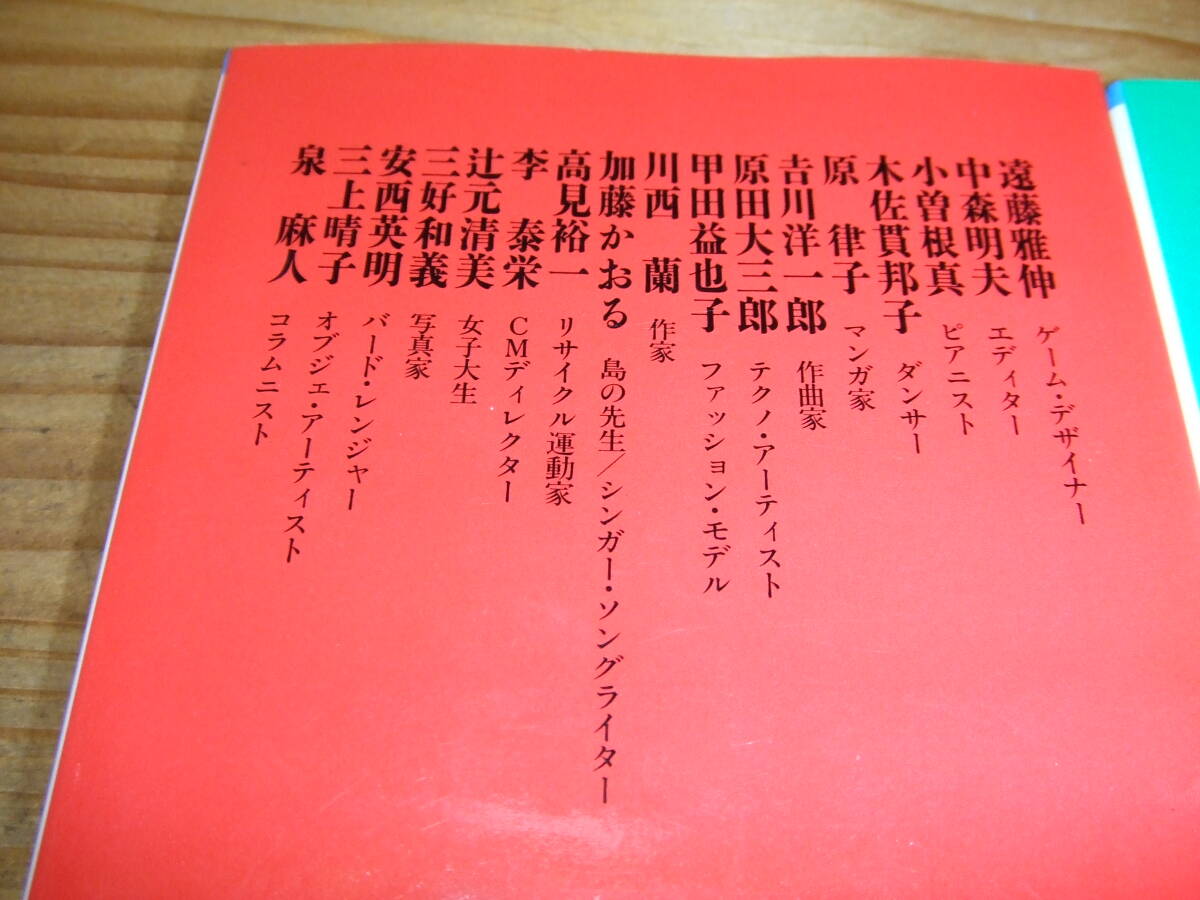 遠藤雅伸 ゲーム・デザイナー
中森明夫 エディター
小曽根真 ピアニスト
木佐貫邦子 ダンサー
原 律子 マンガ家
吉川洋一郎 作曲家
原田大三郎 テクノ・アーティスト
甲田益也子 ファッション・モデル
川西 蘭 作家
加藤かおる 島の先生/シンガー・ソングライター
高見裕一 リサイクル運動家
李 泰栄 CMディレクター
辻元清美 女子大生
三好和義 写真家
安西英明 バード・レンジャー
三上晴子 オブジェ・アーティスト
泉 麻人 コラムニスト